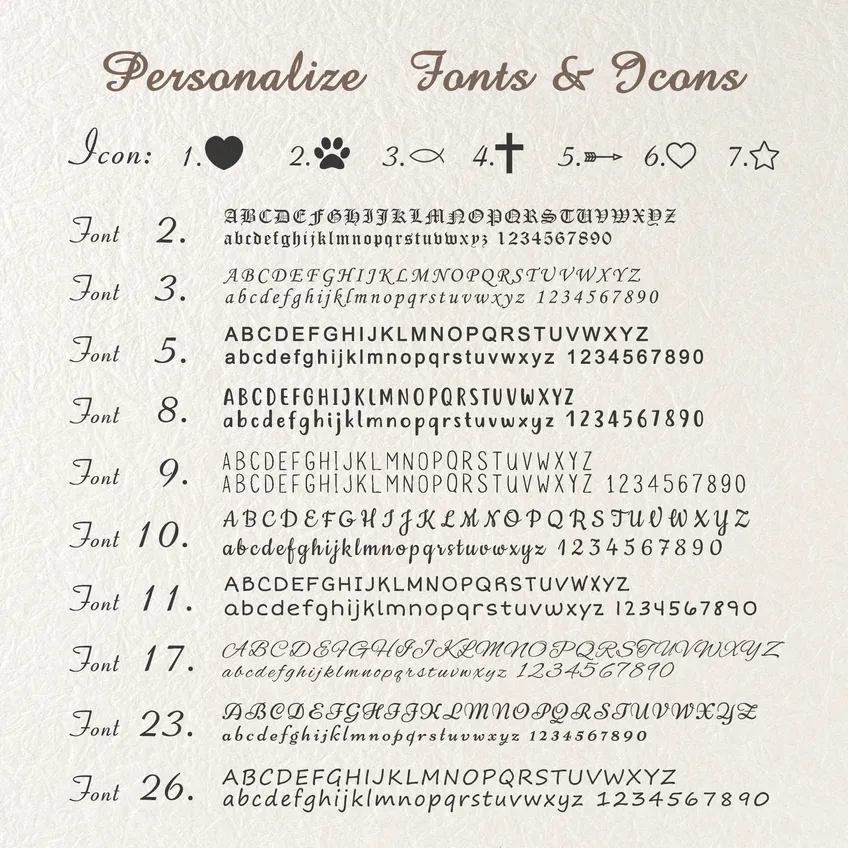 Personalize Fonts & Icons
Icon: 1. 2. 3. 4. 5. 6. 7.
Font 2. ABCDEFGHIJKLMNOPQRSTUVWXYZ
abcdefghijklmnopqrstuvwxyz 1234567890
Font 3. ABCDEFGHIJKLMNOPQRSTUVWXYZ
abcdefghijklmnopqrstuvwxyz 1234567890
Font 5. ABCDEFGHIJKLMNOPQRSTUVWXYZ
abcdefghijklmnopqrstuvwxyz 1234567890
Font 8. ABCDEFGHIJKLMNOPQRSTUVWXYZ
abcdefghijklmnopqrstuvwxyz 1234567890
Font 9. ABCDEFGHIJKLMNOPQRSTUVWXYZ
ABCDEFGHIJKLMNOPQRSTUVWXYZ 1234567890
Font 10. ABCDEFGHIJKLMNOPQRSTUVWXYZ
abcdefghijklmnopqrstuvwxyz 1234567890
Font 11. ABCDEFGHIJKLMNOPQRSTUVWXYZ
abcdefghijklmnopqrstuvwxyz 1234567890
Font 17. ABCDEFGHIJKLMNOPQRSTUVWXYZ
abcdefghijklmnopqrstuvwxyz 1234567890
Font 23. ABCDEFGHIJKLMNOPQRSTUVWXYZ
abcdefghijklmnopqrstuvwxyz 1234567890
Font 26. ABCDEFGHIJKLMNOPQRSTUVWXYZ
abcdefghijklmnopqrstuvwxyz 1234567890